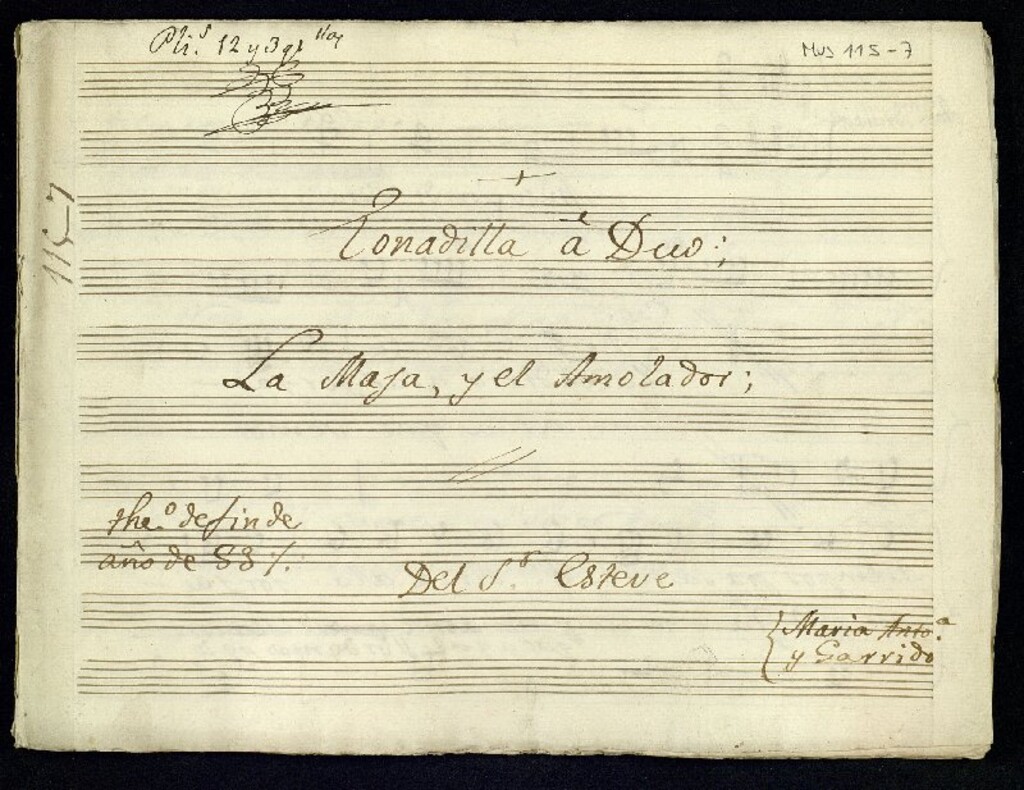 Pli.s 12 y 3 qr llos
Mus 115-7
115-7
Tonadilla á Duo;
La Maja, y el Amolador;
the.o de fin de
año de 83 %.
Del S.r Esteve
Maria Anto.a
y Garrido